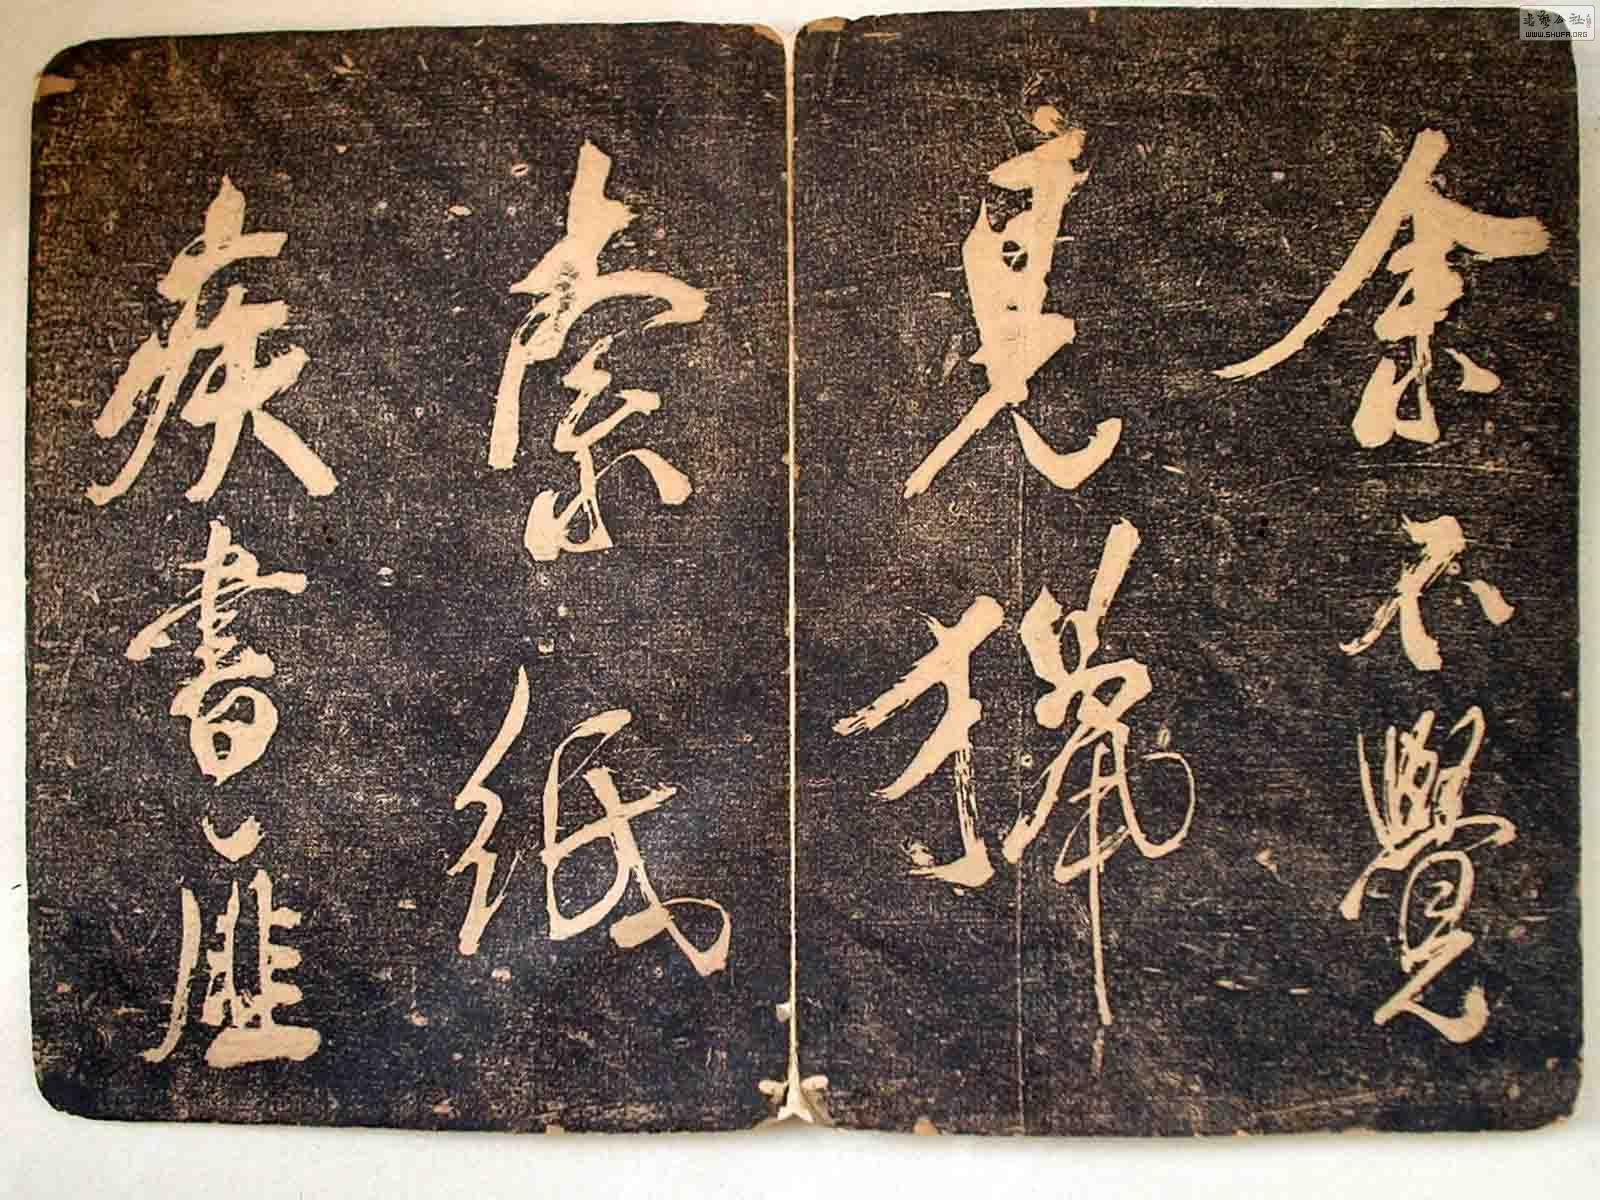 余不覺
見獵
索紙
疾書匪
書藝公社
WWW.SHUFA.ORG